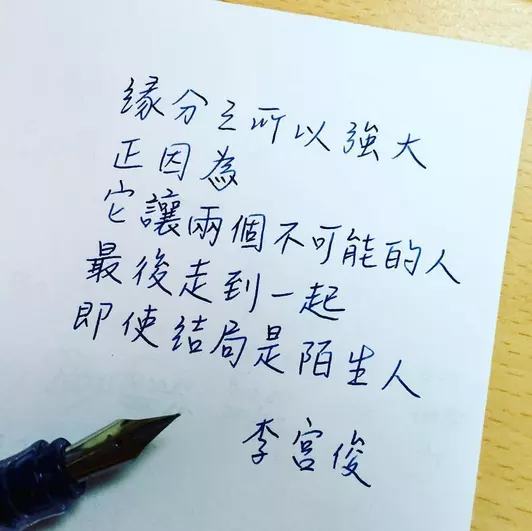 緣分之所以強大
正因為
它讓兩個不可能的人
最後走到一起
即使結局是陌生人
李宮俊